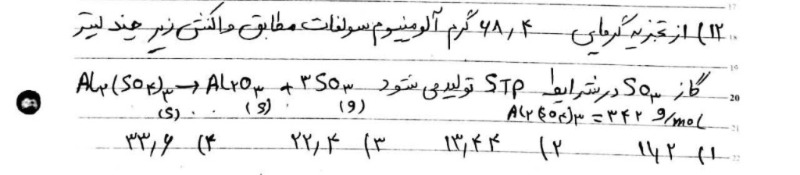 ۱۲) از تجزیه گرمایی ۶۸,۴ گرم آلومنیوم سولفات مطابق واکنش زیر چند لیتر
گاز SO۳ در شرایط STP تولید می شود Al۲(SO۴)۳ → Al۲O۳ + ۳SO۳
(s) (s) (g) Al۲(SO۴)۳ = ۳۴۲ g/mol
۱) ۱۱,۲ ۲) ۱۳,۴۴ ۳) ۲۲,۴ ۴) ۳۳,۶